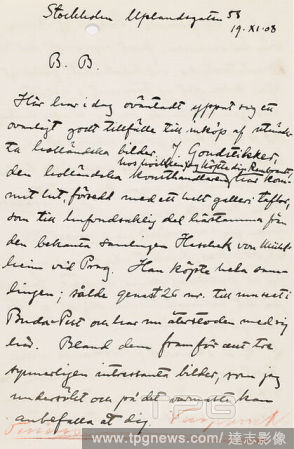 Stockholm Uplandsgatan 58
19.XI.08
B. B.
Här har i dag oväntadt yppat sig ett
ovanligt godt tillfälle till inköp af utmärk-
ta holländska bilder. J. Goudstikker,
hos hvilken jag köpte dig Rembrandt,
den holländska konsthandlaren har kom-
mit hit, försedd med ett helt galleri taflor,
som till hufvudsaklig del härstamma från
den bekanta samlingen Hoschek von Mühl-
heim vid Prag. Han köpte hela sam-
lingen; sålde genast 26 nr. till museet i
Buda-Pest och har nu återstoden med sig
här. Bland dem framför allt tre
synnerligen intressanta bilder, som jag
undersökt och på det varmaste kan
anbefalla åt dig.
TPG
www.tpgnews.com / 達志影像